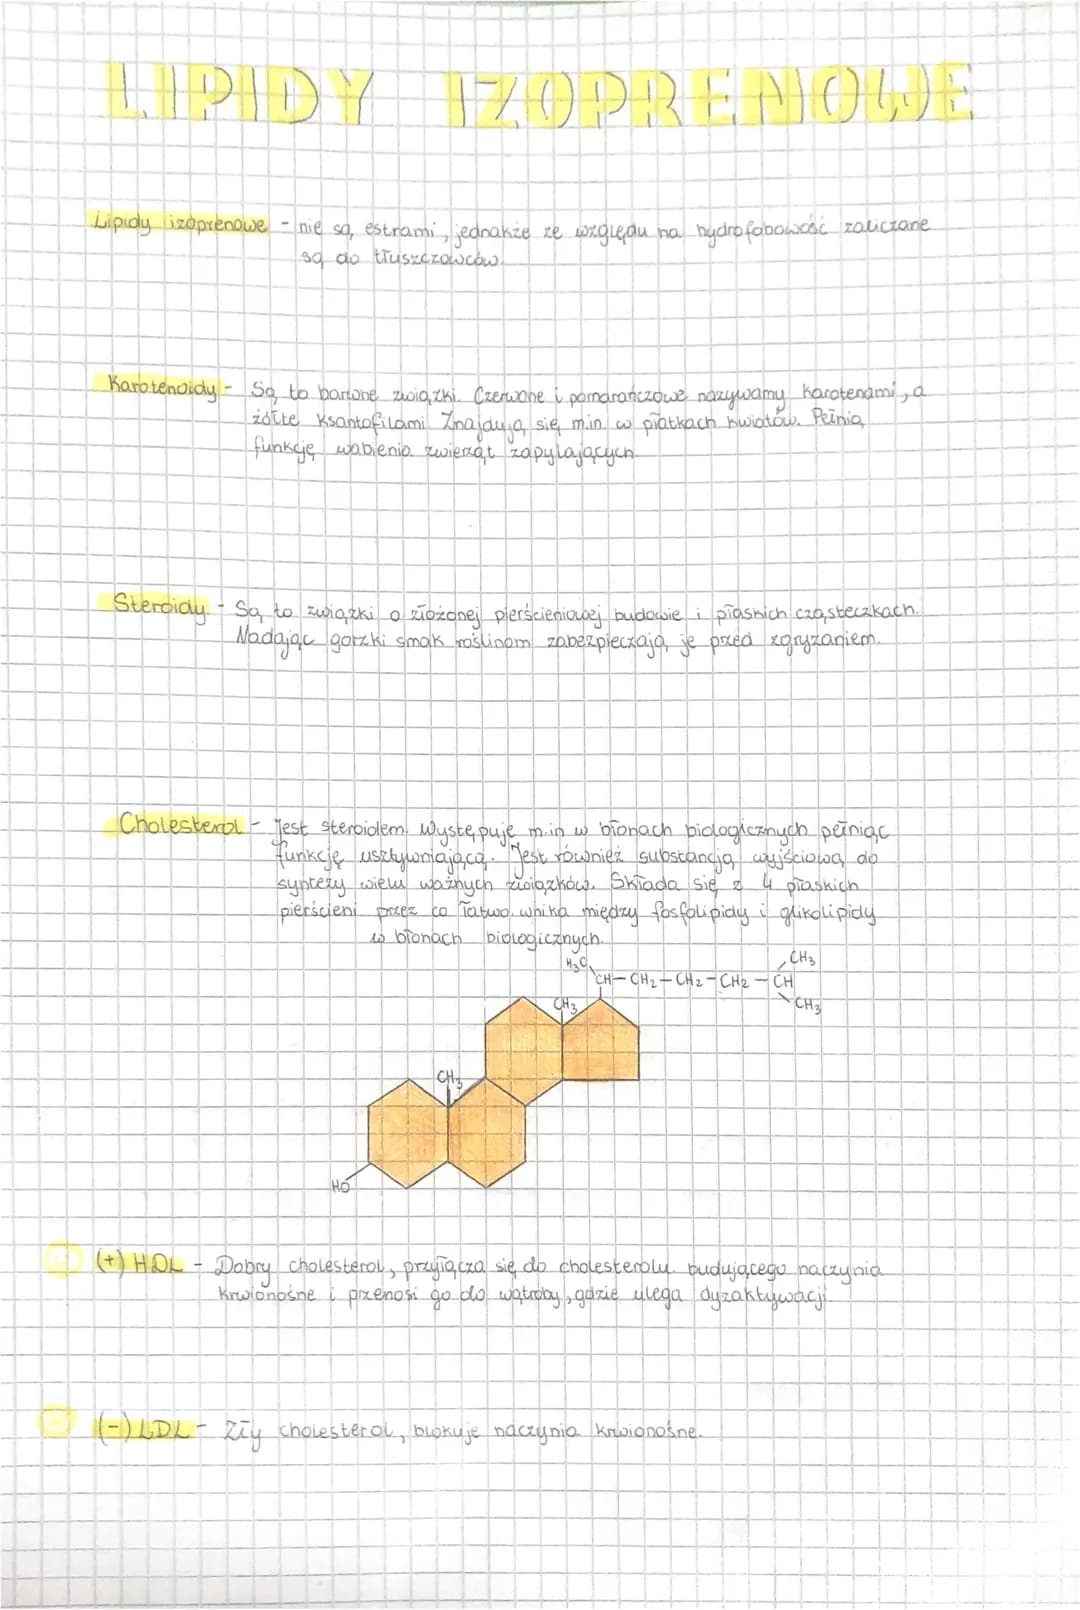 LIPIDY IZOPRENOWE
Lipidy izoprenowe - nie są estrami, jednakże ze względu na hydrofobowość zaliczane
są do tłuszczowców
Karotenoidy - Są to barwne związki. Czerwone i pomarańczowe nazywamy karotenami, a
żółte ksantofilami. Znajdują się m.in. w płatkach kwiatów. Pełnią
funkcję wabienia zwierząt zapylających.
Steroidy - Są to związki o złożonej pierścieniowej budowie i płaskich cząsteczkach.
Nadając gorzki smak roślinom zabezpieczają je przed zgryzaniem.
Cholesterol - Jest steroidem. Występuje m.in w błonach biologicznych pełniąc
funkcję usztywniającą. Jest również substancją wyjściową do
syntezy wielu ważnych związków. Składa się z 4 płaskich
pierścieni przez co łatwo wnika między fosfolipidy i glikolipidy
w błonach biologicznych.
H₃C CH₃
CH-CH₂-CH₂-CH₂-CH
CH₃ CH₃
CH₃
HO
(+) HDL - Dobry cholesterol, przyłącza się do cholesterolu budującego naczynia
krwionośne i przenosi go do wątroby, gdzie ulega dyzaktywacji.
(-) LDL - Zły cholesterol, blokuje naczynia krwionośne.